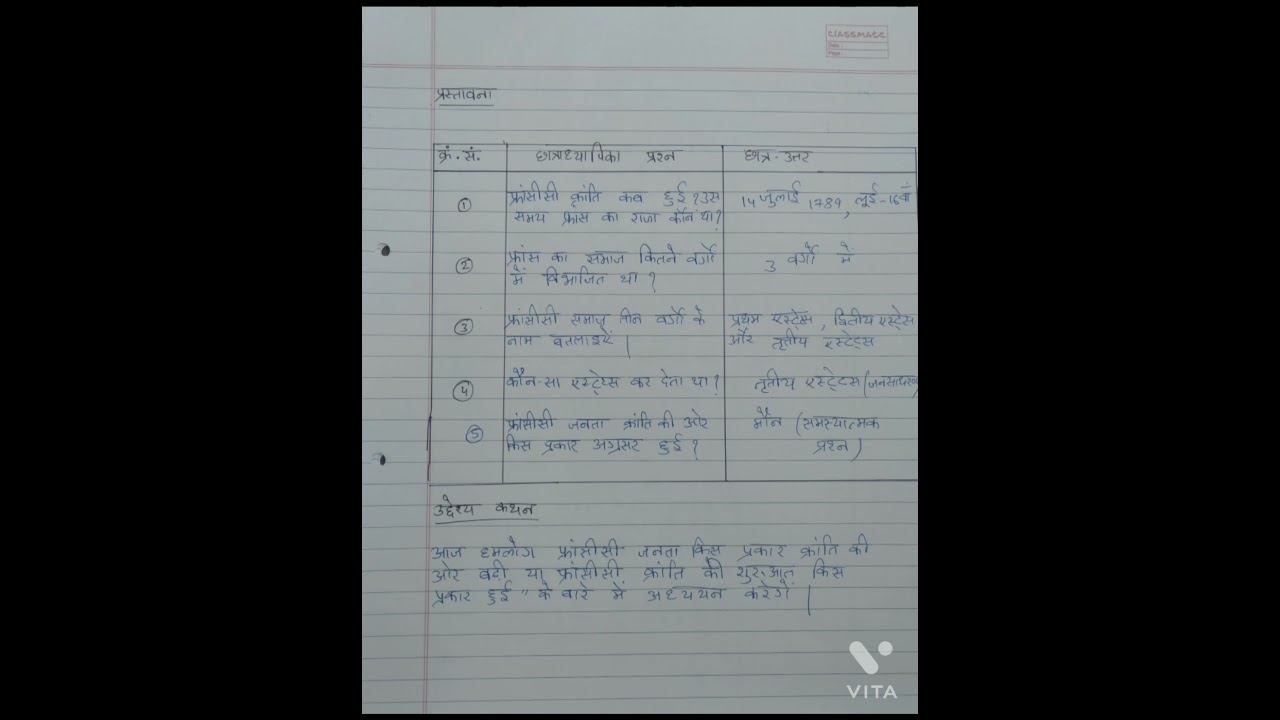 CLASSMATE
Date:
Page:
प्रस्तावना
क्रं.सं. छात्राध्यापिका प्रश्न छात्र-उत्तर
① फ्रांसीसी क्रांति कब हुई? उस 14 जुलाई 1789, लूई-16वाँ
समय फ्रांस का राजा कौन था?
② फ्रांस का समाज कितने वर्गों 3 वर्गों में
में विभाजित था?
③ फ्रांसीसी समाज तीन वर्गों के प्रथम एस्टेट्स, द्वितीय एस्टेट्स
नाम बतलाइएँ। और तृतीय एस्टेट्स
④ कौन-सा एस्टेट्स कर देता था? तृतीय एस्टेटस (जनसाधारण)
⑤ फ्रांसीसी जनता क्रांति की ओर मौन (समस्यात्मक
किस प्रकार अग्रसर हुई? प्रश्न)
उद्देश्य कथन
आज हमलोग फ्रांसीसी जनता किस प्रकार क्रांति की
ओर बढ़ी या फ्रांसीसी क्रांति की शुरुआत किस
प्रकार हुई" के बारे में अध्ययन करेगें।
VITA